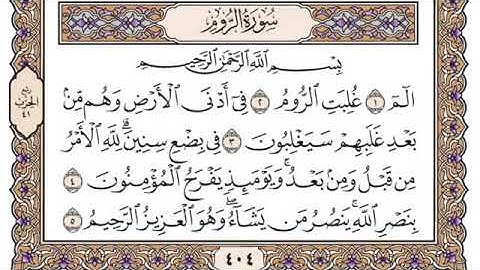 سُورَةُ الرُّومِ
بِسْمِ اللَّهِ الرَّحْمَٰنِ الرَّحِيمِ
الٓمٓ ١ غُلِبَتِ الرُّومُ ٢ فِىٓ أَدْنَى الْأَرْضِ وَهُم مِّنۢ
بَعْدِ غَلَبِهِمْ سَيَغْلِبُونَ ٣ فِى بِضْعِ سِنِينَۗ لِلَّهِ الْأَمْرُ
مِن قَبْلُ وَمِنۢ بَعْدُۚ وَيَوْمَئِذٍ يَفْرَحُ الْمُؤْمِنُونَ ٤
بِنَصْرِ اللَّهِۚ يَنصُرُ مَن يَشَآءُۖ وَهُوَ الْعَزِيزُ الرَّحِيمُ ٥
ربع
الحزب
٤١
٤٠٤